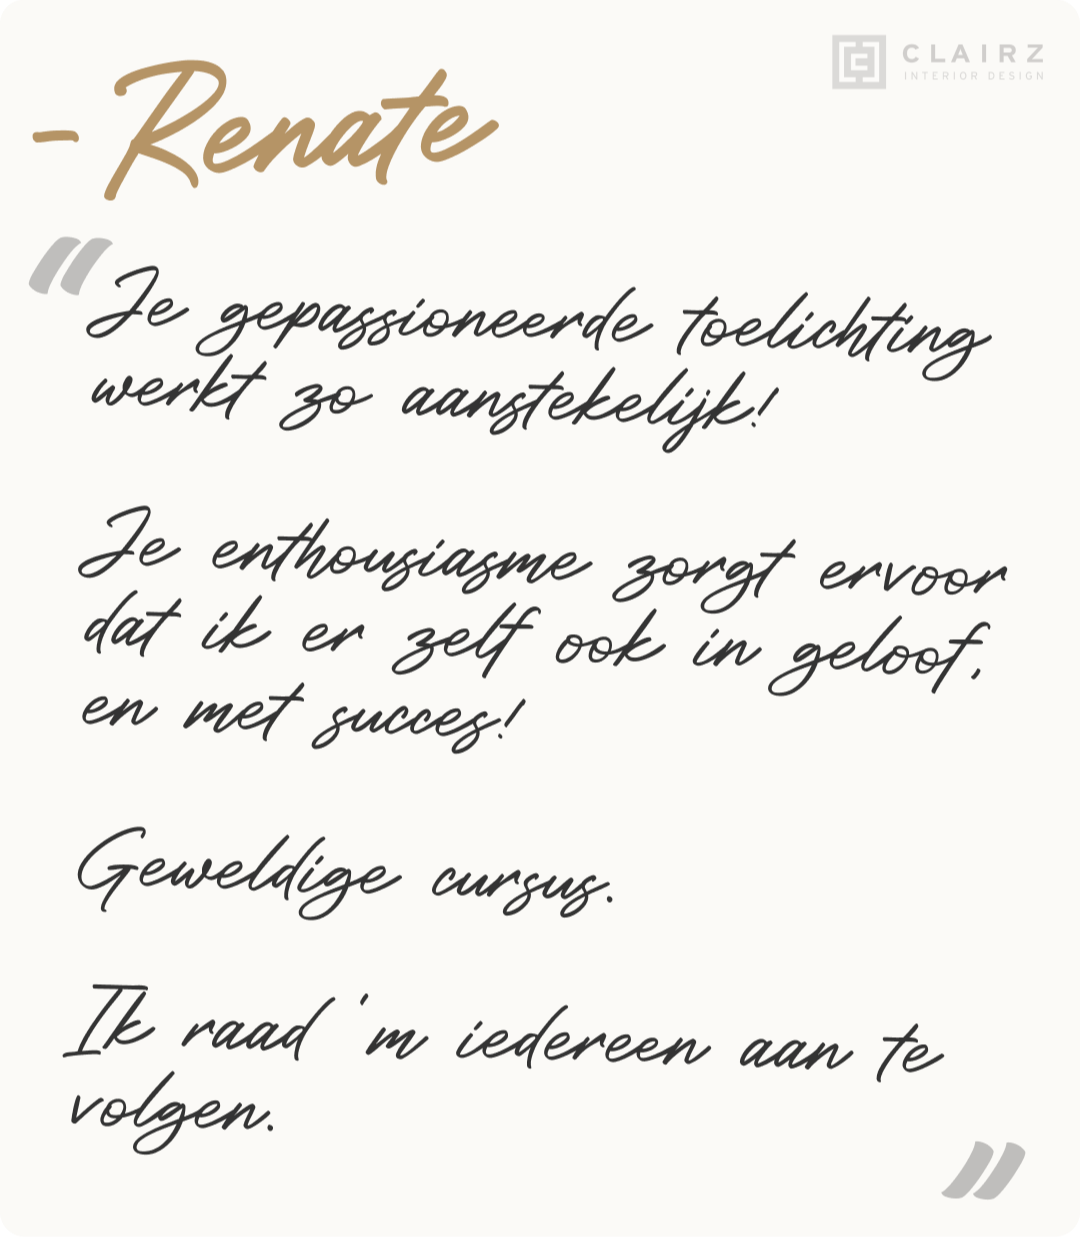 - Renate
CLAIRZ
INTERIOR DESIGN
“Je gepassioneerde toelichting
werkt zo aanstekelijk!
Je enthousiasme zorgt ervoor
dat ik er zelf ook in geloof,
en met succes!
Geweldige cursus.
Ik raad 'm iedereen aan te
volgen.
”